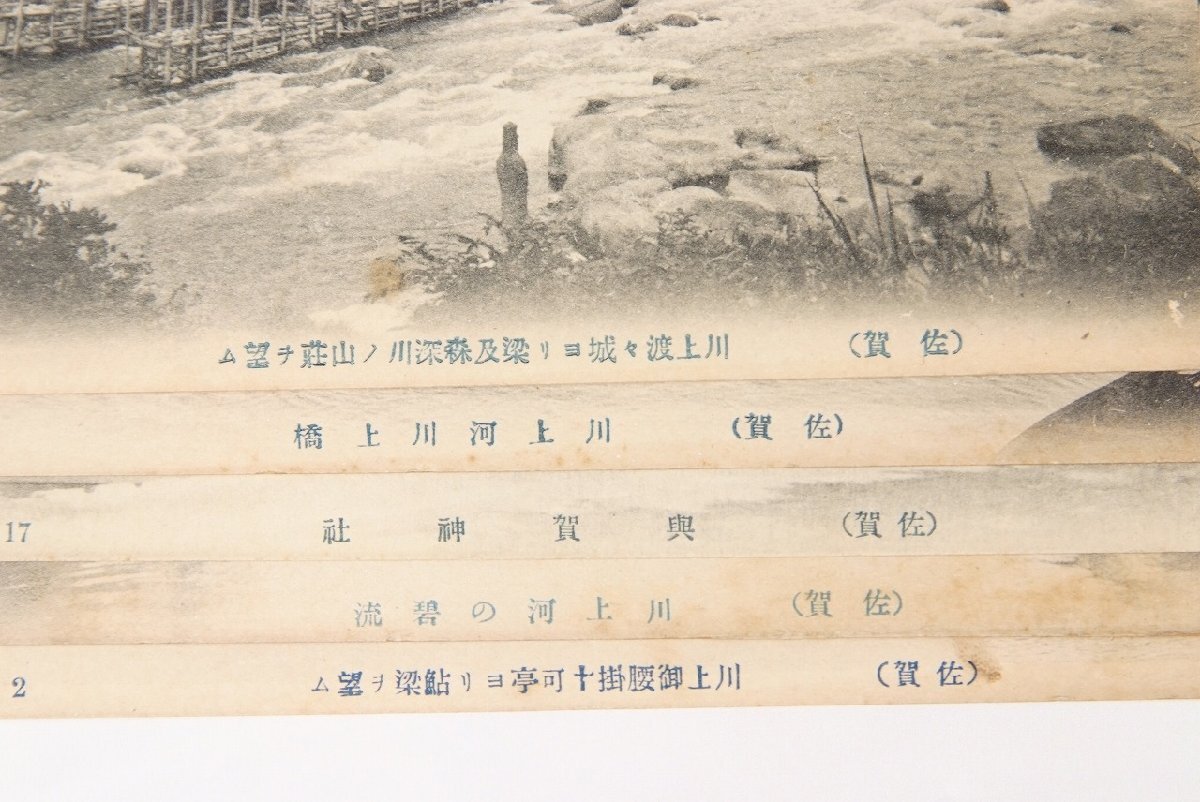 (佐賀) 川上渡々城ヨリ梁及森深川ノ山荘ヲ望ム
(佐賀) 川上河川上橋
(佐賀) 與賀神社 17
(佐賀) 川上河の碧流
(佐賀) 川上御腰掛十可亭ヨリ鮎梁ヲ望ム 2